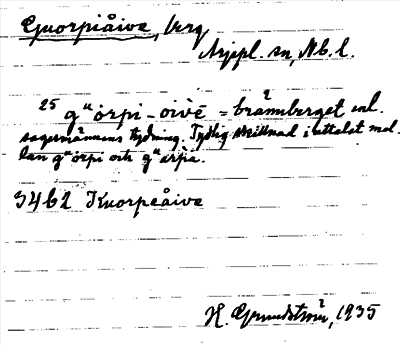 Guorpiåive, berg
Arjepl. sn, Nb. l.
25 gᵘorpi-oivē = brännberget enl.
sagesmannens tydning. Tydlig skillnad i uttalet mel-
lan gᵘorpi och gᵘarpa.
3462 Kuorpeåive
H. Grundström, 1935